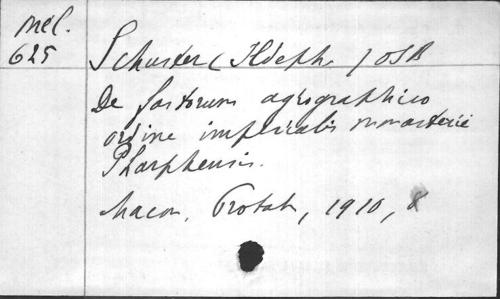 Mél.
625
Schuster (Ildeph.) OSB
De fastorum agiographico
ordine imperialis monasterii
Pharphensis.
Macon, Protat, 1910, 8